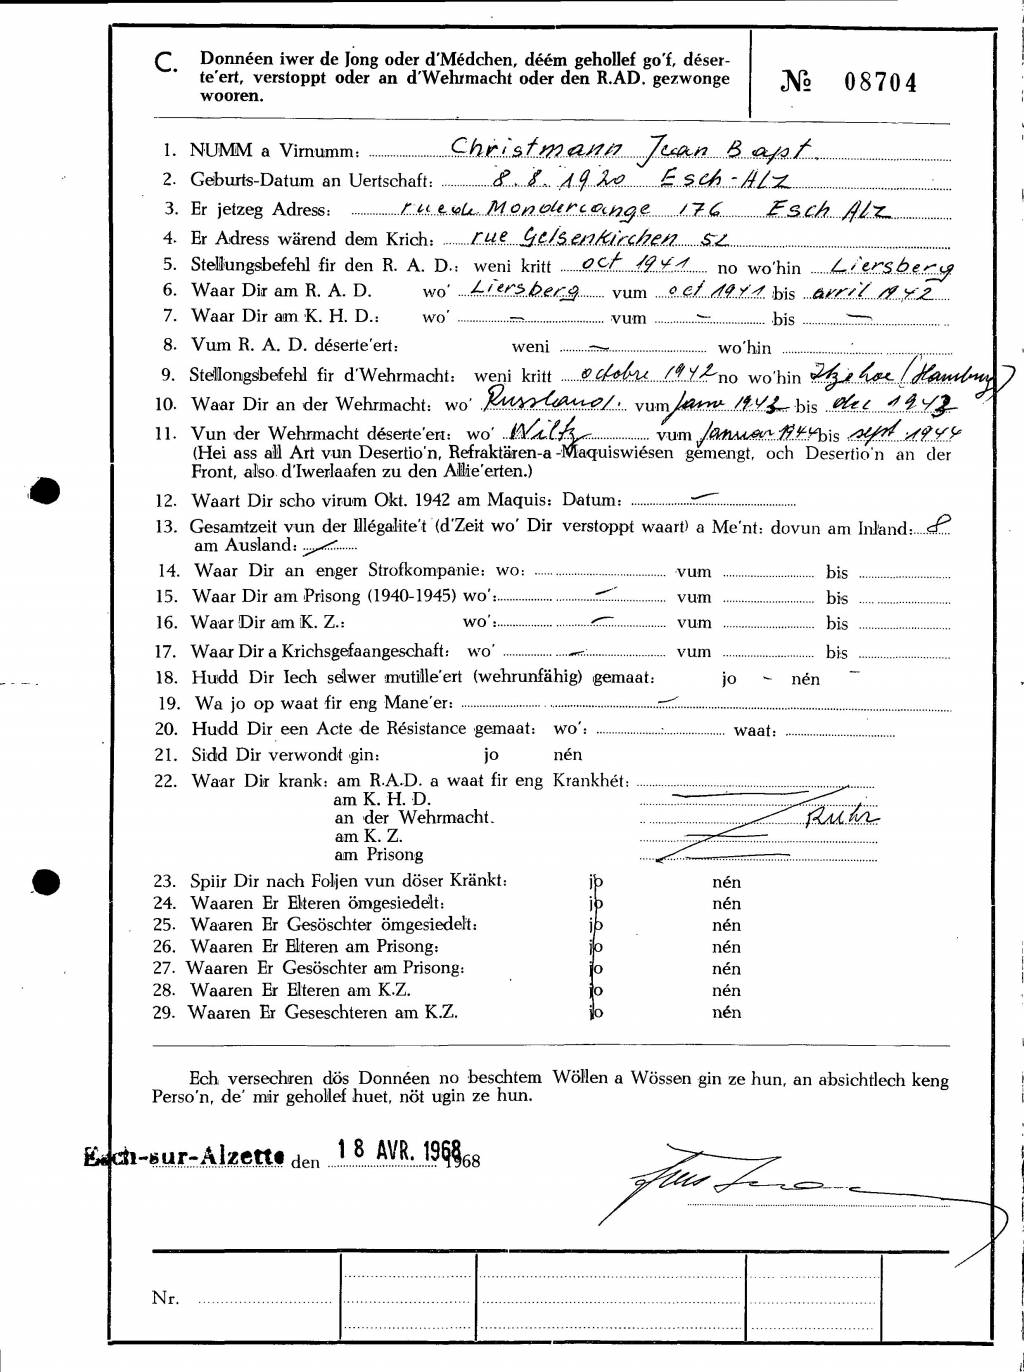 C. Donnéen iwer de Jong oder d'Médchen, déém gehollef go'f, déser-
te'ert, verstoppt oder an d'Wehrmacht oder den R.AD. gezwonge
wooren.
№ 08704
1. NUMM a Virnumm: Christmann Jean Bapt.
2. Geburts-Datum an Uertschaft: 8.8.1920 Esch-Alz
3. Er jetzeg Adress: rue de Mondercange 176 Esch Alz
4. Er Adress wärend dem Krich: rue Gelsenkirchen 52
5. Stellungsbefehl fir den R. A. D.: weni kritt oct 1941 no wo'hin Liersberg
6. Waar Dir am R. A. D. wo' Liersberg vum oct 1941 bis avril 1942
7. Waar Dir am K. H. D.: wo' — vum — bis —
8. Vum R. A. D. déserte'ert: weni — wo'hin
9. Stellongsbefehl fir d'Wehrmacht: weni kritt octobre 1942 no wo'hin Itzehoe (Hamburg)
10. Waar Dir an der Wehrmacht: wo' Russland. vum Janv 1943 bis dec 1943
11. Vun der Wehrmacht déserte'ert: wo' Wiltz vum Januar 1944 bis sept 1944
(Hei ass all Art vun Desertio'n, Refraktären-a-Maquiswiésen gemengt, och Desertio'n an der
Front, also d'Iwerlaafen zu den Allie'erten.)
12. Waart Dir scho virum Okt. 1942 am Maquis: Datum: —
13. Gesamtzeit vun der Illégalite't (d'Zeit wo' Dir verstoppt waart) a Me'nt: dovun am Inland: 8
am Ausland: —
14. Waar Dir an enger Strofkompanie: wo: vum bis
15. Waar Dir am Prisong (1940-1945) wo': — vum bis
16. Waar Dir am K. Z.: wo': — vum bis
17. Waar Dir a Krichsgefaangeschaft: wo' — vum bis
18. Hudd Dir Iech selwer mutille'ert (wehrunfähig) gemaat: jo - nén —
19. Wa jo op waat fir eng Mane'er: —
20. Hudd Dir een Acte de Résistance gemaat: wo': waat:
21. Sidd Dir verwondt gin: jo nén
22. Waar Dir krank: am R.A.D. a waat fir eng Krankhét:
am K. H. D.
an der Wehrmacht. Ruhr
am K. Z.
am Prisong
23. Spiir Dir nach Foljen vun döser Kränkt: jo nén
24. Waaren Er Elteren ömgesiedelt: jo nén
25. Waaren Er Gesöschter ömgesiedelt: jo nén
26. Waaren Er Elteren am Prisong: jo nén
27. Waaren Er Gesöschter am Prisong: jo nén
28. Waaren Er Elteren am K.Z. jo nén
29. Waaren Er Geseschteren am K.Z. jo nén
Ech versechren dös Donnéen no beschtem Wöllen a Wössen gin ze hun, an absichtlech keng
Perso'n, de' mir gehollef huet, nöt ugin ze hun.
Esch-sur-Alzette den 18 AVR. 1968 1968
Nr.